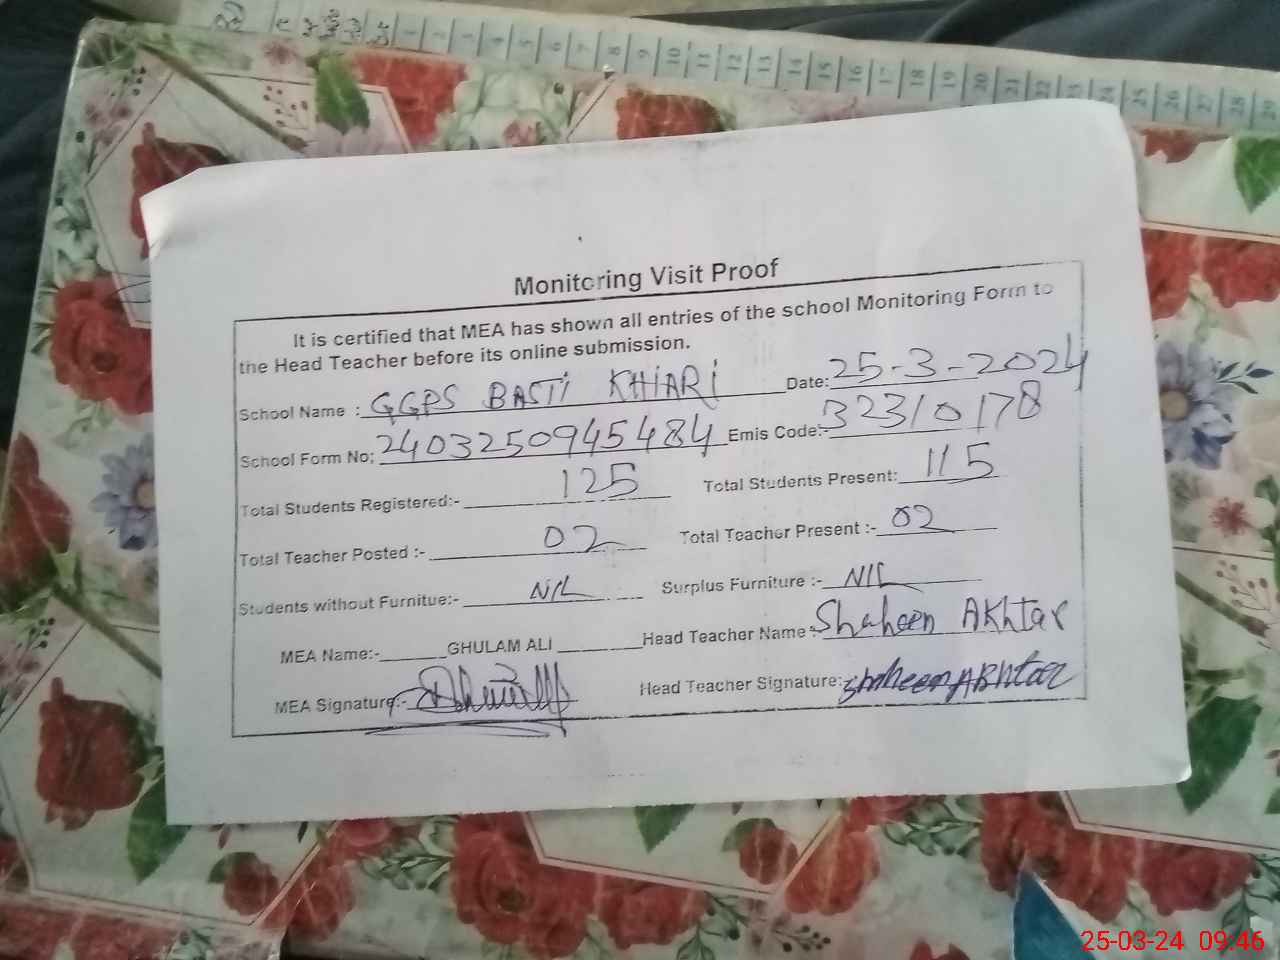 1 2 3 4 5 6 7 8 9 10 11 12 13 14 15 16 17 18 19 20 21 22 23 24 25 26 27 28 29
Monitoring Visit Proof
It is certified that MEA has shown all entries of the school Monitoring Form to
the Head Teacher before its online submission.
School Name : GGPS BASTI KHIARI Date: 25-3-2024
School Form No; 2403250945484 Emis Code:- 32310178
Total Students Registered:- 125 Total Students Present: 115
Total Teacher Posted :- 02 Total Teacher Present :- 02
Students without Furnitue:- NIL Surplus Furniture :- NIL
MEA Name:- GHULAM ALI Head Teacher Name :- Shaheen AKhtar
MEA Signature:- Head Teacher Signature: Shaheen AKhtar
25-03-24 09:46